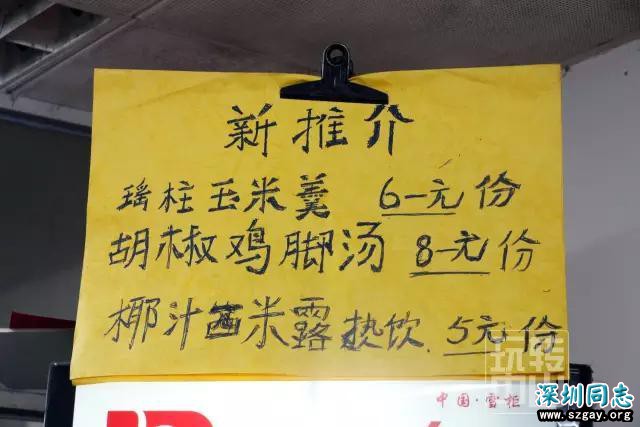 新推介
瑶柱玉米羹 6元份
胡椒鸡脚汤 8元份
椰汁西米露热饮. 5元份
玩转
中国·雪柜
深圳同志
www.szgay.org